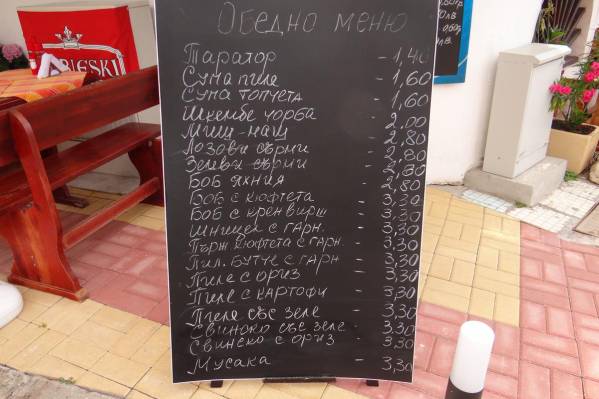 Обедно меню
Таратор - 1,40
Супа пиле - 1,60
Супа топчета - 1,60
Шкембе чорба - 2,00
Миш-маш - 2,80
Лозови сърми - 2,80
Зелеви сърми - 2,80
Боб яхния - 2,80
Боб с кюфтета - 3,30
Боб с кренвирш - 3,30
Шницел с гарн. - 3,30
Пърж. кюфтета с гарн. - 3,30
Пил. бутче с гарн - 3,30
Пиле с ориз - 3,30
Пиле с картофи - 3,30
Пиле със зеле - 3,30
Свинско със зеле - 3.30
Свинско с ориз - 3.30
Мусака - 3,30